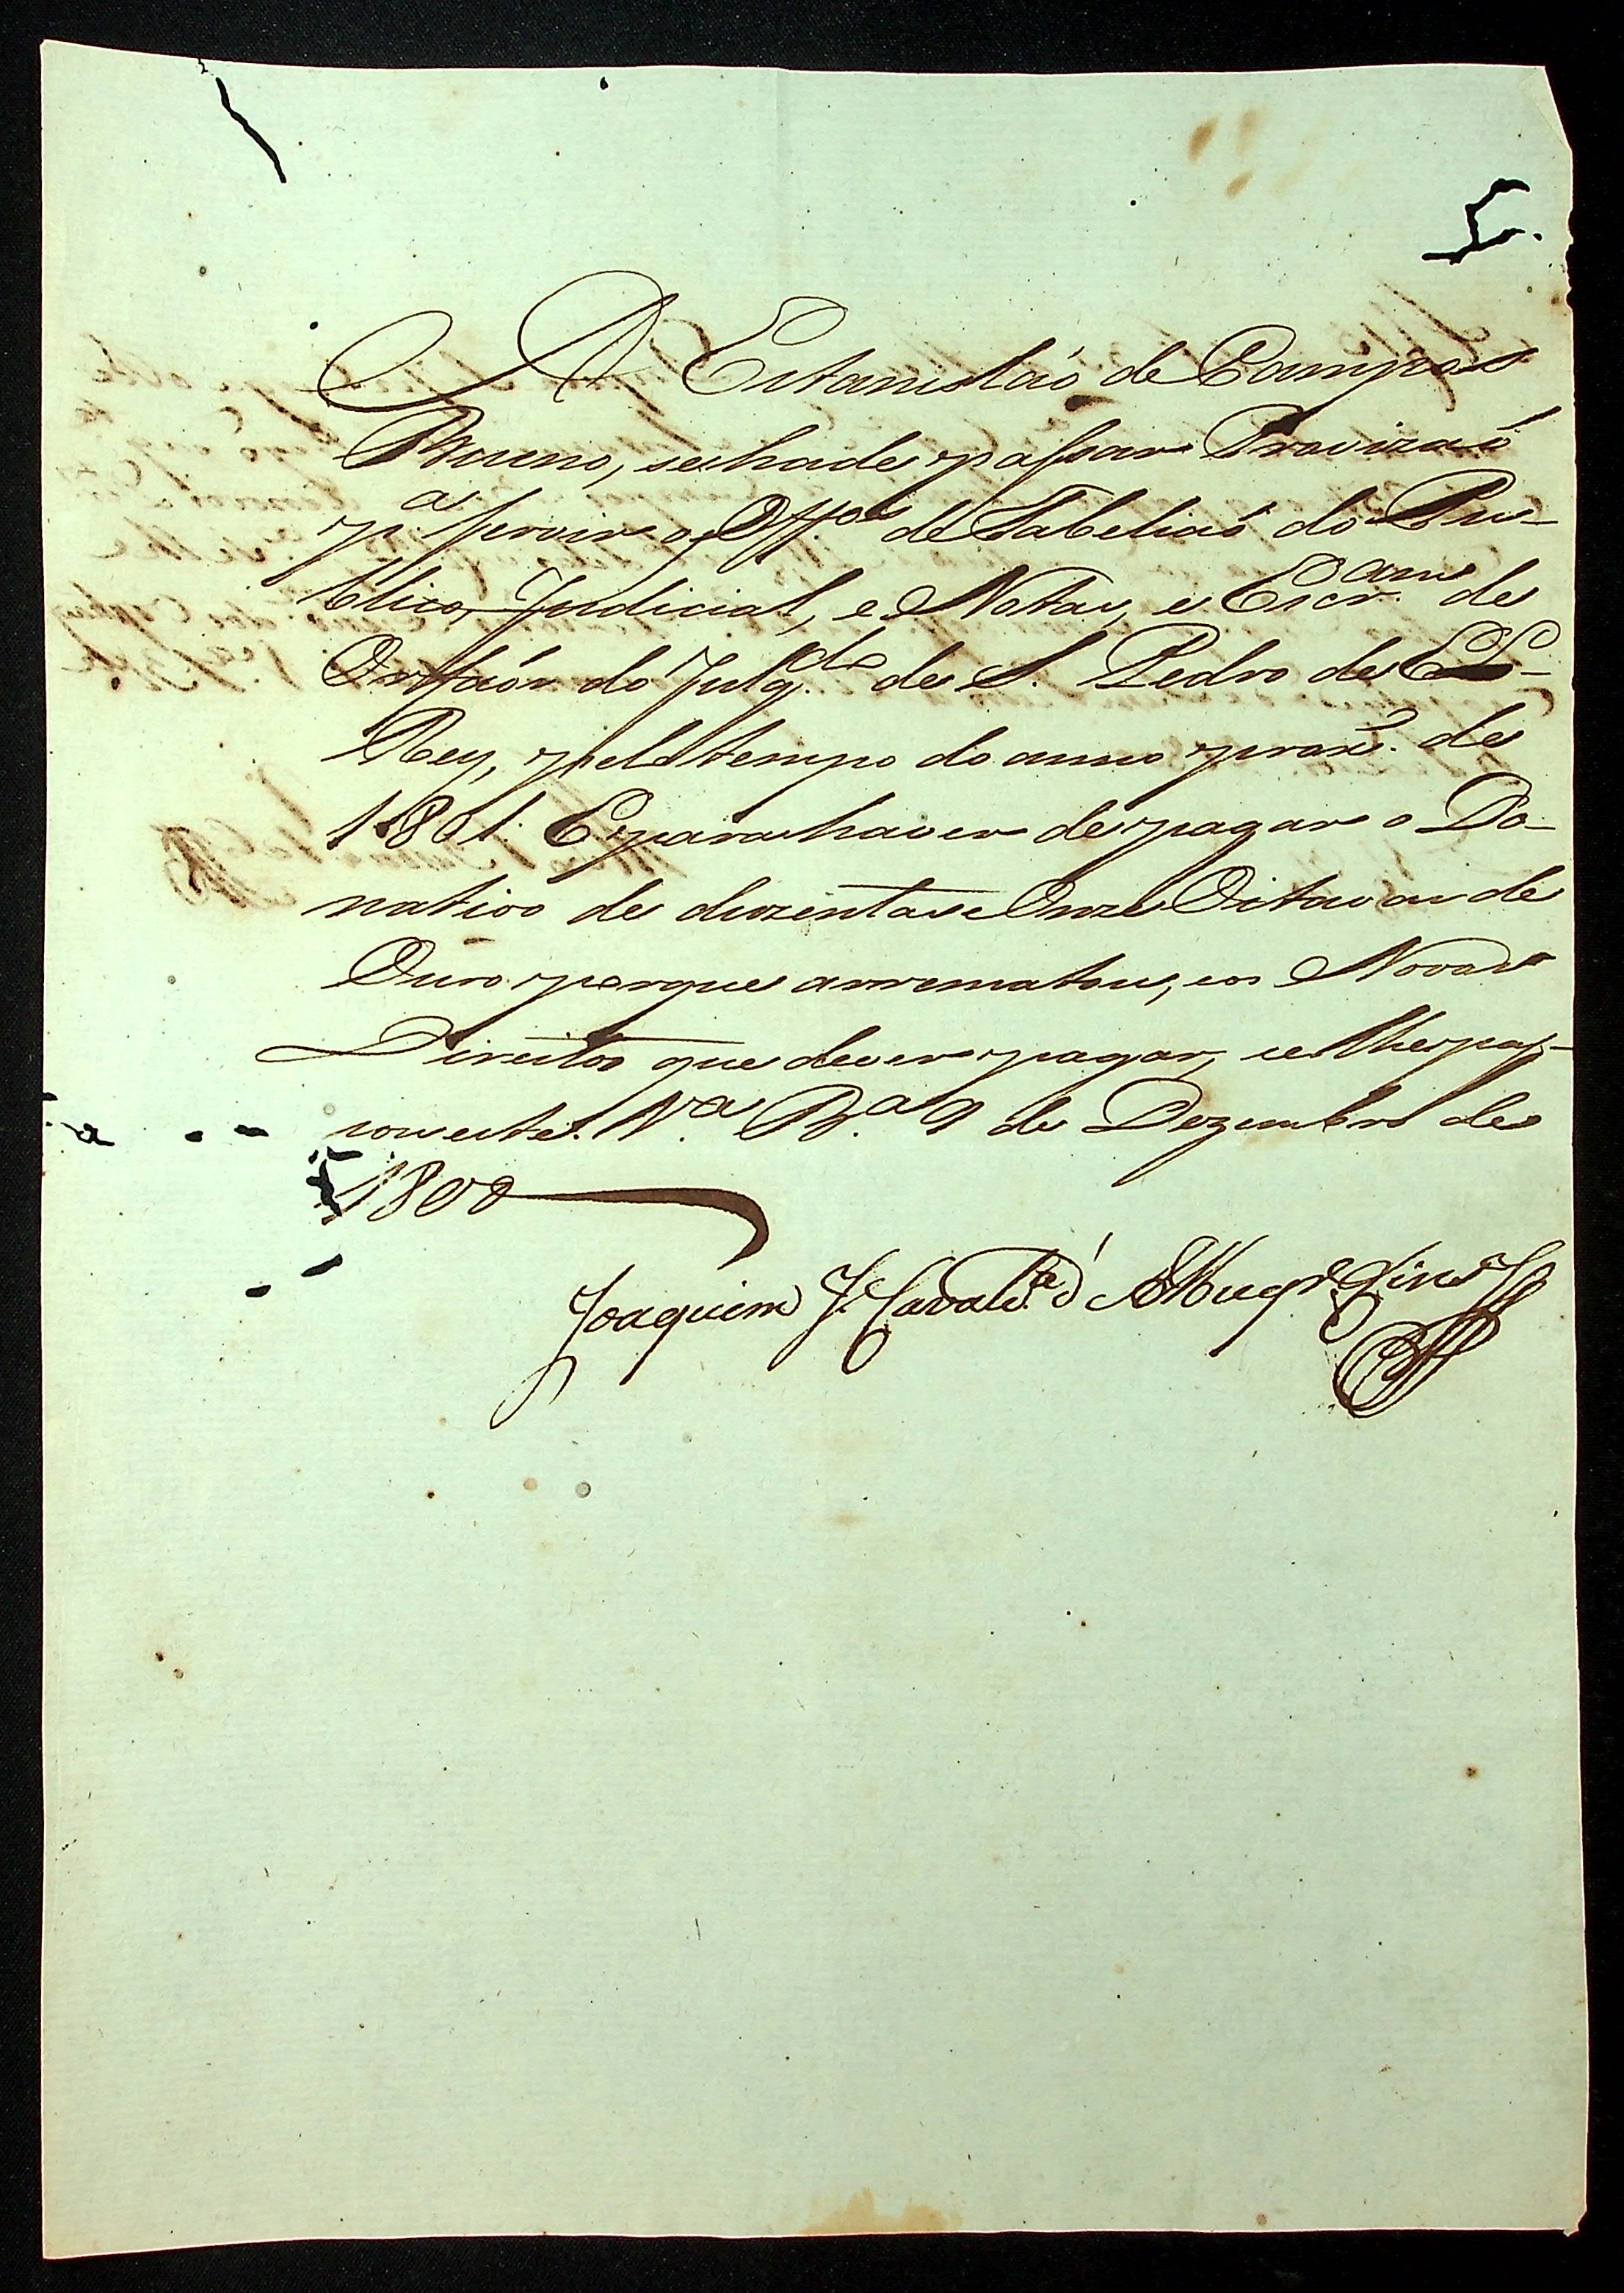 A Estanisláo de Campos
Bueno, se ha de passar Provizaõ
p.ª servir os Off.os de Tabeliaõ do Pu-
blico, Judicial, e Notas, e Escr.am de
Orfaõs do Julg.do de S. Pedro de El-
Rey, pelo tempo do anno prox.º de
1801. E para haver de pagar o Do-
nativo de duzentas e Onze Oitavas de
Ouro porque arrematou, e os Novos
Direitos que dever pagar, se lhe pas-
sou este. V.ª B.ª 9 de Dezembro de
1800
Joaquim J. Cavalc.te d'Albuqr.e Lins